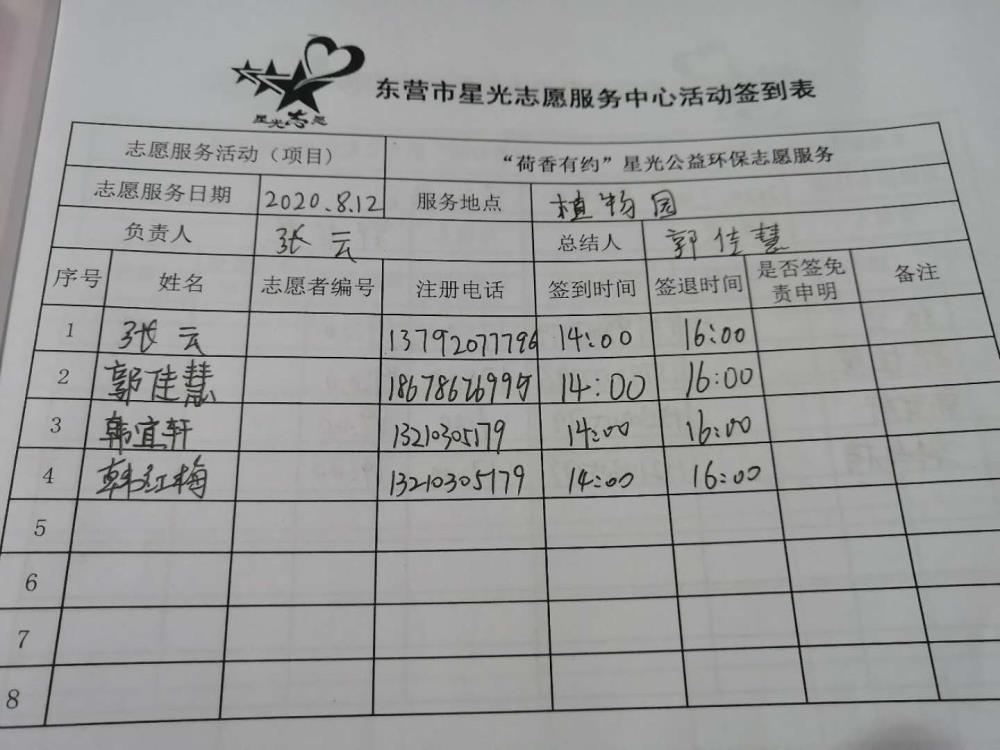 星光志愿
东营市星光志愿服务中心活动签到表
志愿服务活动（项目） “荷香有约”星光公益环保志愿服务
志愿服务日期 2020.8.12 服务地点 植物园
负责人 张云 总结人 郭佳慧
序号 姓名 志愿者编号 注册电话 签到时间 签退时间 是否签免责申明 备注
1 张云 13792077796 14:00 16:00
2 郭佳慧 14:00 16:00
3 韩宜轩 13210305179 14:00 16:00
4 韩红梅 13210305179 14:00 16:00
5
6
7
8